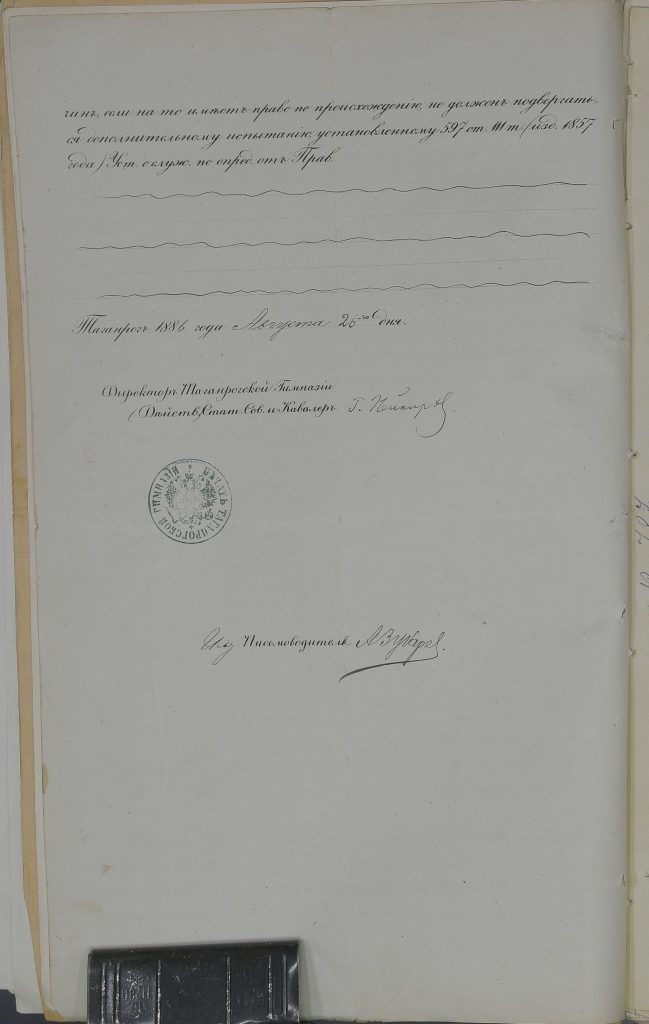 чинъ, если на то имѣетъ право по происхожденію, не долженъ подвергать-
ся дополнительному испытанію, установленному 597 ст. III т. (изд. 1857
года) Уст. о служ. по опред. отъ Прав.
Таганрогъ 1886 года Августа 26го дня.
Директоръ Таганрогской Гимназіи
(Дѣйств. Стат. Сов. и Кавалеръ Г.
ПЕЧАТЬ ТАГАНРОГСКОЙ ГИМНАЗІИ
Письмоводителя А